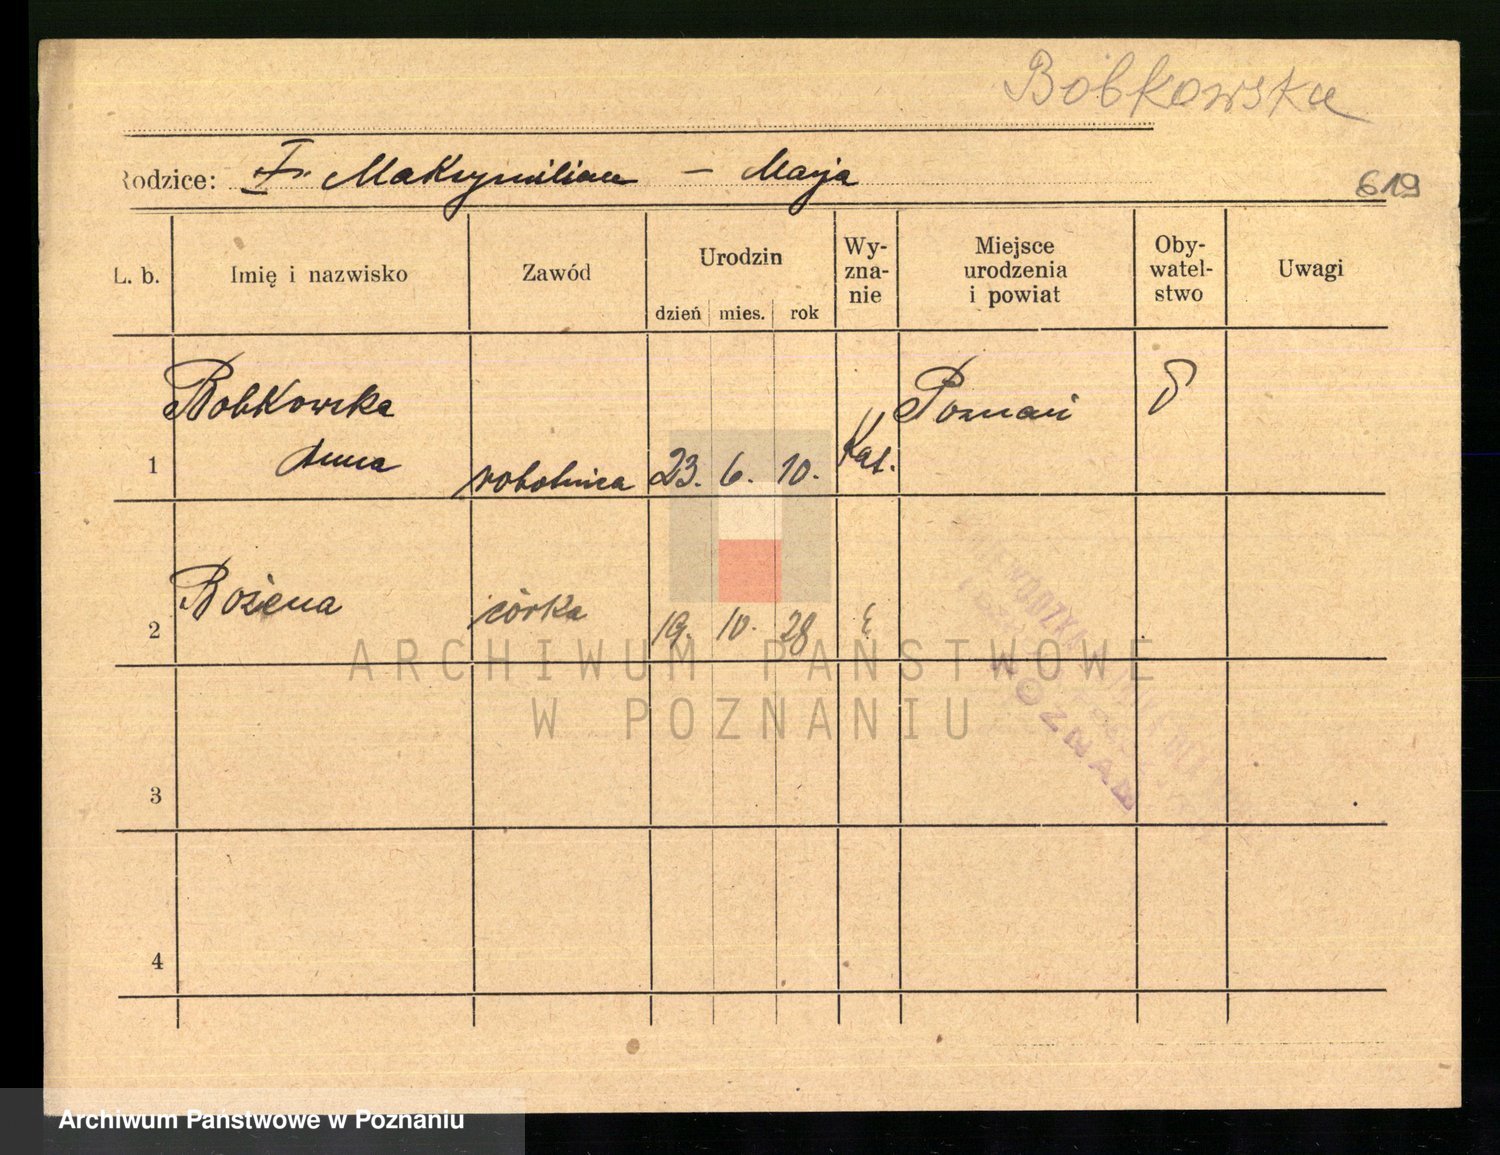 Bobkowska
Rodzice: Maksymilian – Marja
619
L. b. Imię i nazwisko Zawód Urodzin dzień mies. rok Wy-zna-nie Miejsce urodzenia i powiat Oby-watel-stwo Uwagi
Bobkowska Poznań
1 Anna robotnica 23. 6. 10. Kat.
Bożena córka
2 19. 10. 28
ARCHIWUM PAŃSTWOWE
W POZNANIU
POZNAŃ
3
4
Archiwum Państwowe w Poznaniu